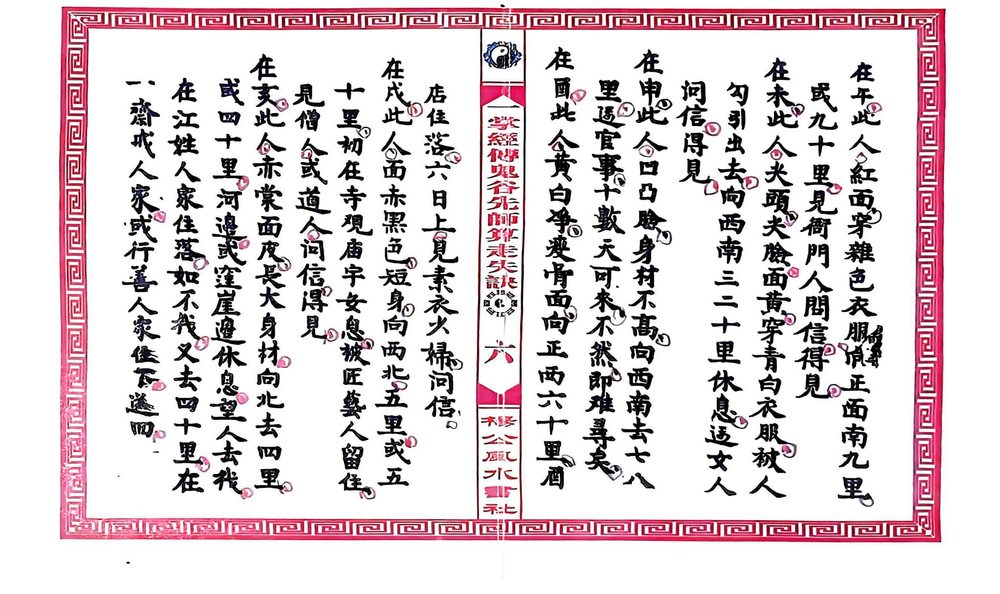 在午此人紅面穿雜色衣服向正面南九里
或九十里見衙門人問信得見
在未此人尖頭尖臉面黃穿青白衣服被人
勾引出去向西南三二十里休息逢女人
问信得見
在申此人凹凸臉身材不高向西南去七八
里逢官事十數天可來不然即难尋矣
在酉此人黄白净瘦骨面向正西六十里酒
一掌經傳鬼谷先師算走失訣
六
楊公風水書社
店住落六日上見素衣火婦问信
在戌此人面赤黑色短身向西北五里或五
十里初在寺观庙宇安息被匠藝人留住
見僧人或道人问信得見
在亥此人赤棠面皮長大身材向北去四里
或四十里河邊或窪崖邊休息望人去找
在江姓人家住落如不找又去四十里在
一齋戒人家或行善人家住下